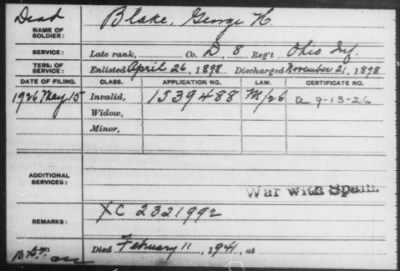 Dead
NAME OF SOLDIER: Blake, George H.
SERVICE: Late rank, Co. D, 8 Reg't Ohio Inf.
TERM OF SERVICE: Enlisted April 26, 1898. Discharged November 21, 1898
DATE OF FILING. CLASS. APPLICATION NO. LAW. CERTIFICATE NO.
1926 May 15 Invalid, 1539488 M/26 a 9-13-26
Widow,
Minor,
ADDITIONAL SERVICES:
War with Spain.
REMARKS: XC 2321992
Died February 11, 1941, at